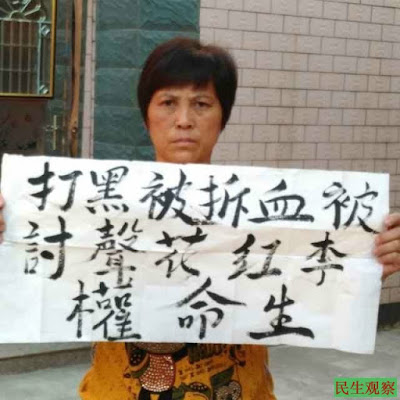 被血拆被黑打
李红花聲討
生命權
民生观察